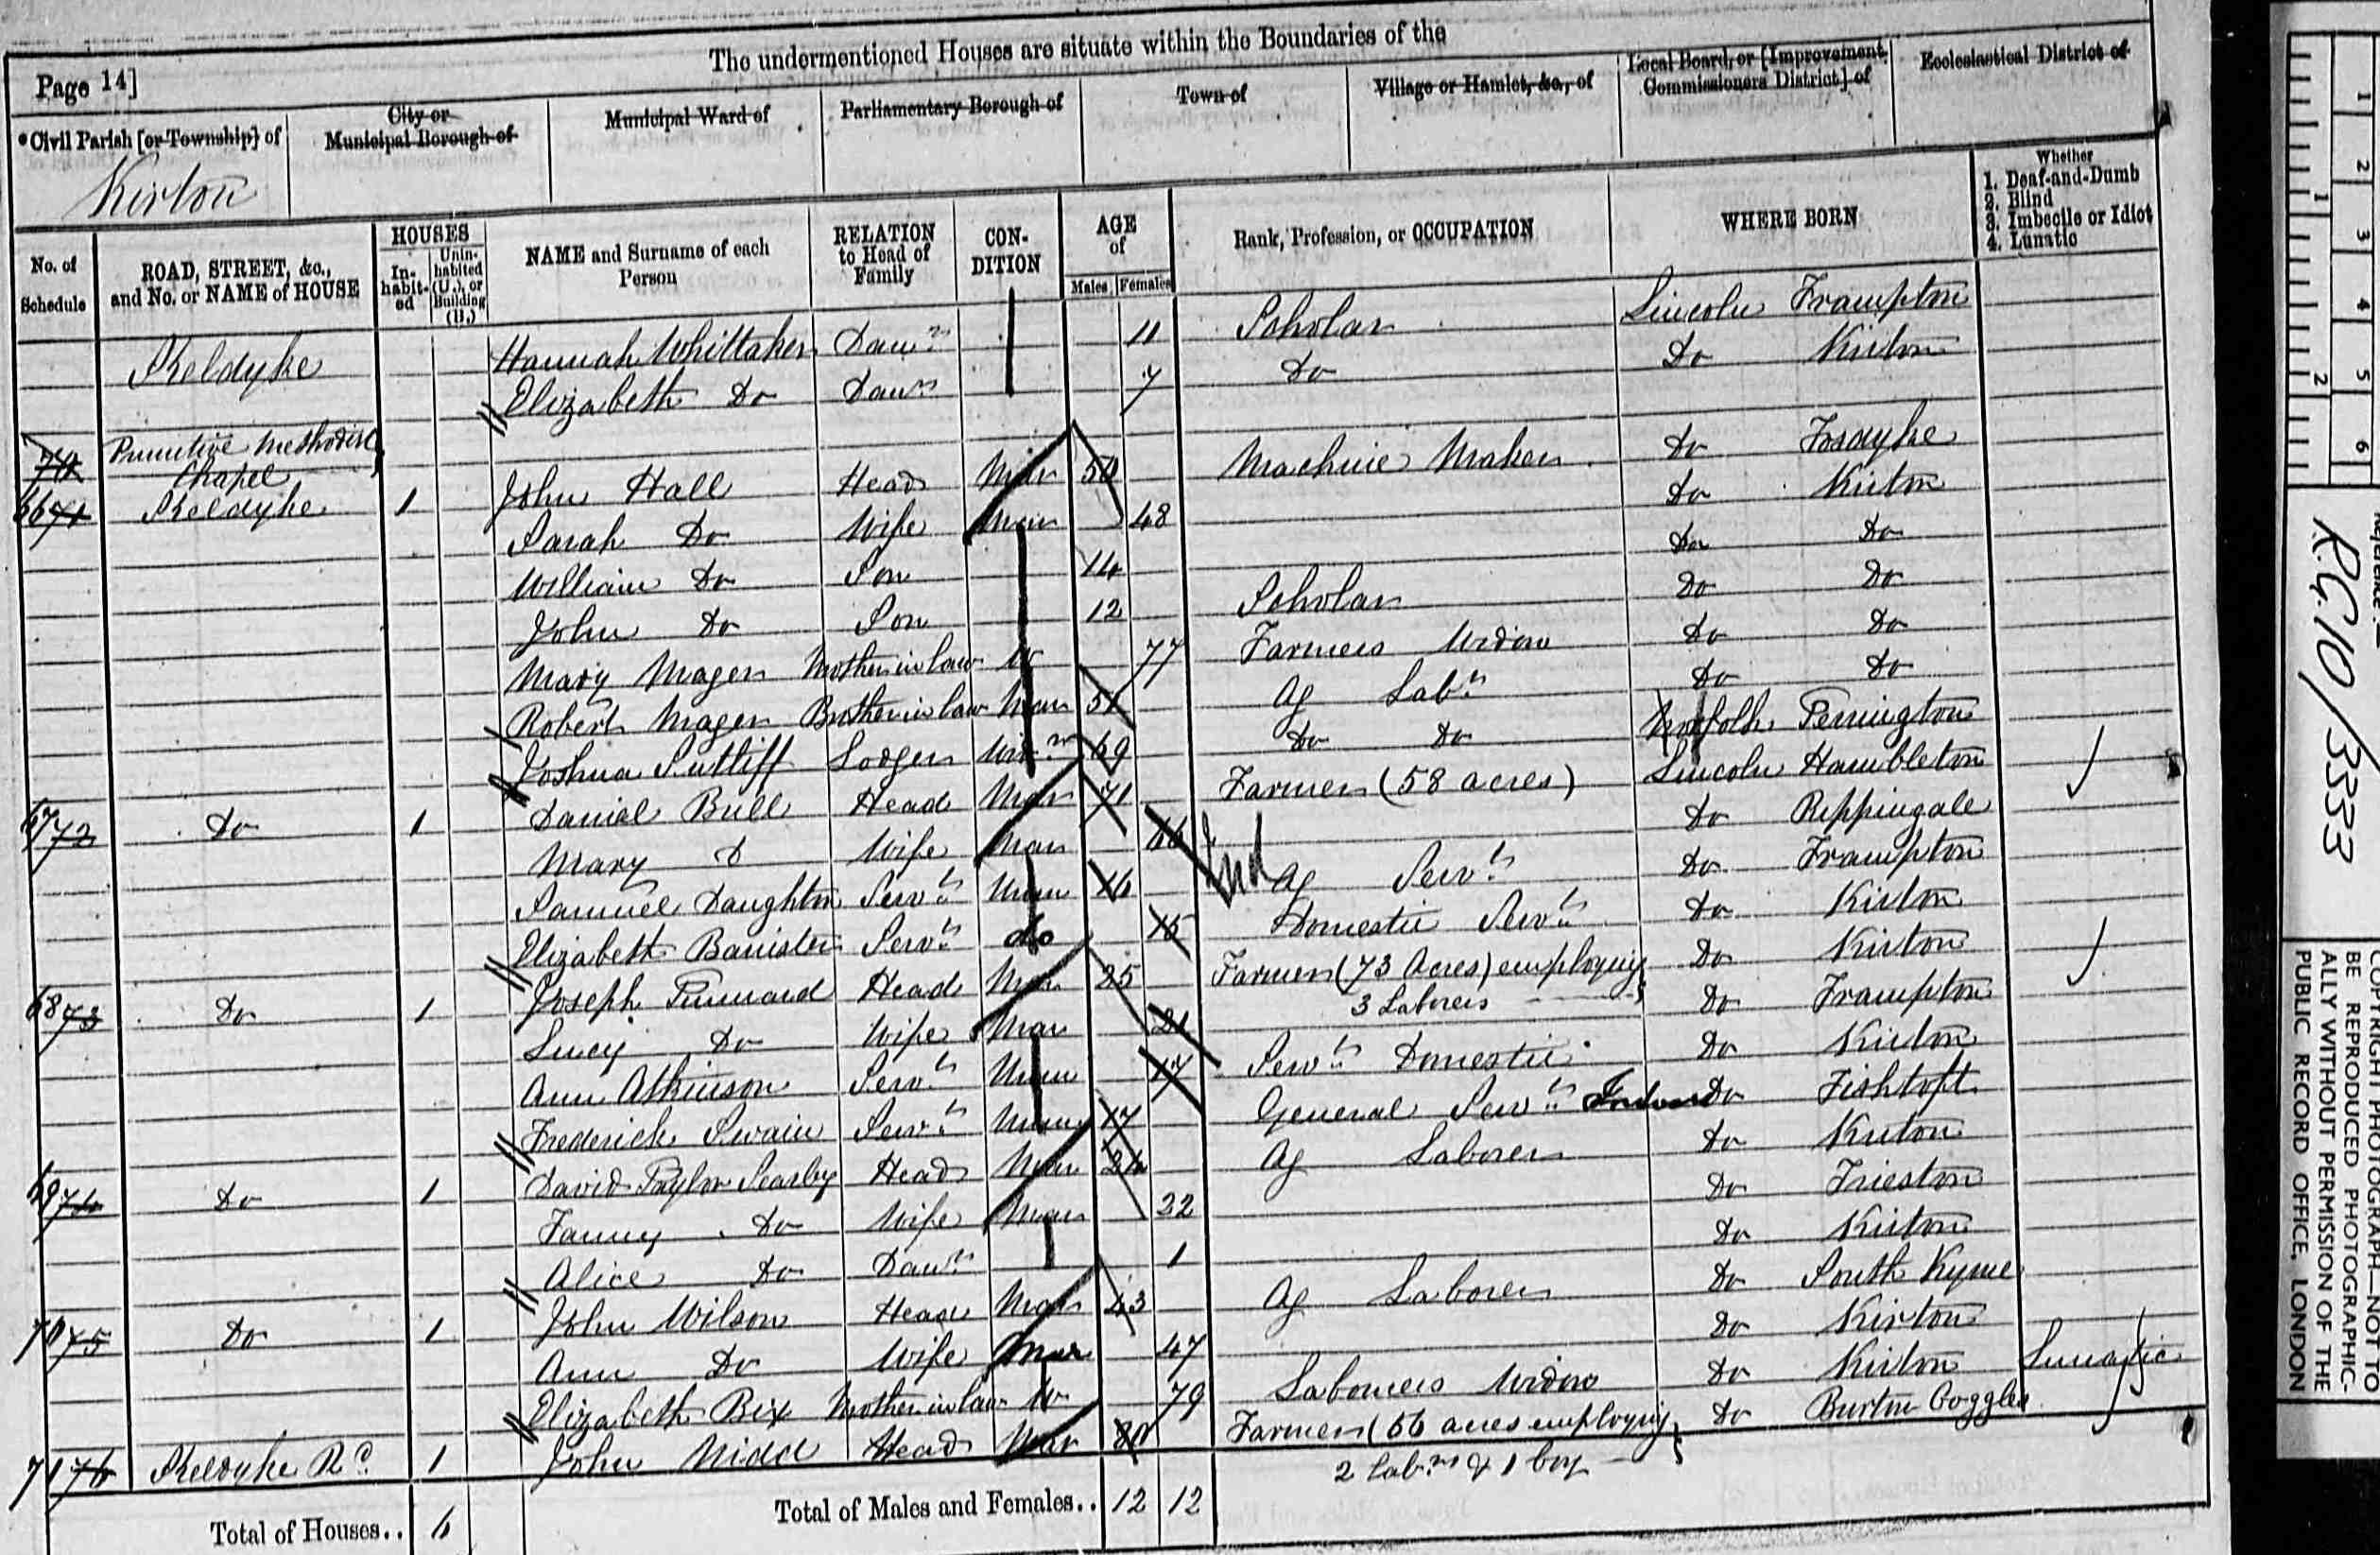 The undermentioned Houses are situate within the Boundaries of the
Page 14]
Civil Parish [or Township] of
City or Municipal Borough of
Municipal Ward of
Parliamentary Borough of
Town of
Village or Hamlet, &c., of
Local Board, or [Improvement Commissioners District] of
Ecclesiastical District of
Kirton
No. of Schedule
ROAD, STREET, &c., and No. or NAME of HOUSE
HOUSES
In-habit-ed
Unin-habited (U.), or Building (B.)
NAME and Surname of each Person
RELATION to Head of Family
CON-DITION
AGE of
Males
Females
Rank, Profession, or OCCUPATION
WHERE BORN
Whether
1. Deaf-and-Dumb
2. Blind
3. Imbecile or Idiot
4. Lunatic
Skeldyke Hannah Whittaker Daur 11 Scholar Lincoln Frampton
Elizabeth Do Daur 7 Do Do Kirton
70 Primitive Methodist Chapel
66 71 Skeldyke 1 John Hall Head Mar 50 Machine Maker Do Fosdyke
Sarah Do Wife Mar 48 Do Kirton
William Do Son 14 Do Do
John Do Son 12 Scholar Do Do
Mary Mager Mother in law W 77 Farmers Widow Do Do
Robert Mager Brother in law 51 Ag Labr Do Do
Joshua Sutliff Lodger Widr 69 Do Do Norfolk
67 72 Do 1 Daniel Bull Head Mar 71 Farmer (58 acres) Lincoln Hambleton
Mary D Wife Mar 66 Do Rippingale
Samuel Daughton Servt Unm 16 Ag Servt Do Frampton
Ind
Elizabeth Banister Servt do 15 Domestic Servt Do Kirton
68 73 Do 1 Joseph Head Mar 25 Farmer (73 Acres) employing 3 Laborers Do Kirton
Lucy Do Wife Mar 21 Do Frampton
Ann Atkinson Servt Unm 17 Servt Domestic Do Kirton
Frederick Swain Servt Unm 17 General Servt Indoor Do Fishtoft
69 74 Do 1 David Taylor Head Mar 24 Ag Laborer Do Kirton
Fanny Do Wife Mar 22 Do Frieston
Alice Do Daur 1 Do Kirton
70 75 Do 1 John Wilson Head Mar 43 Ag Laborer Do South Kyme
Ann Do Wife Mar 47 Do Kirton
Elizabeth Bix Mother in law W 79 Labourers Widow Do Kirton Lunatic
71 76 Skeldyke Rd 1 John Nidd Head Mar 80 Farmer (56 acres employing 2 labrs & 1 boy Do Burton Goggles
Total of Houses.. 6
Total of Males and Females.. 12 12
1 2 3 4 5 6
1 2
RG 10/3333
COPYRIGHT PHOTOGRAPH - NOT TO
BE REPRODUCED PHOTOGRAPHIC-
ALLY WITHOUT PERMISSION OF THE
PUBLIC RECORD OFFICE, LONDON